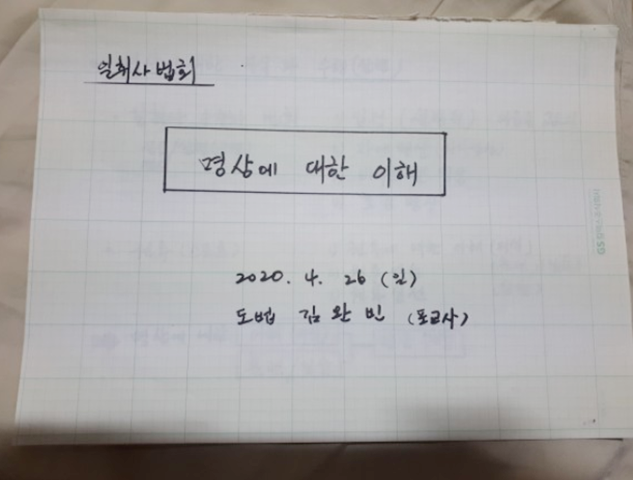 일취사법회
명상에 대한 이해
2020. 4. 26 (일)
도법 김완빈 (포교사)